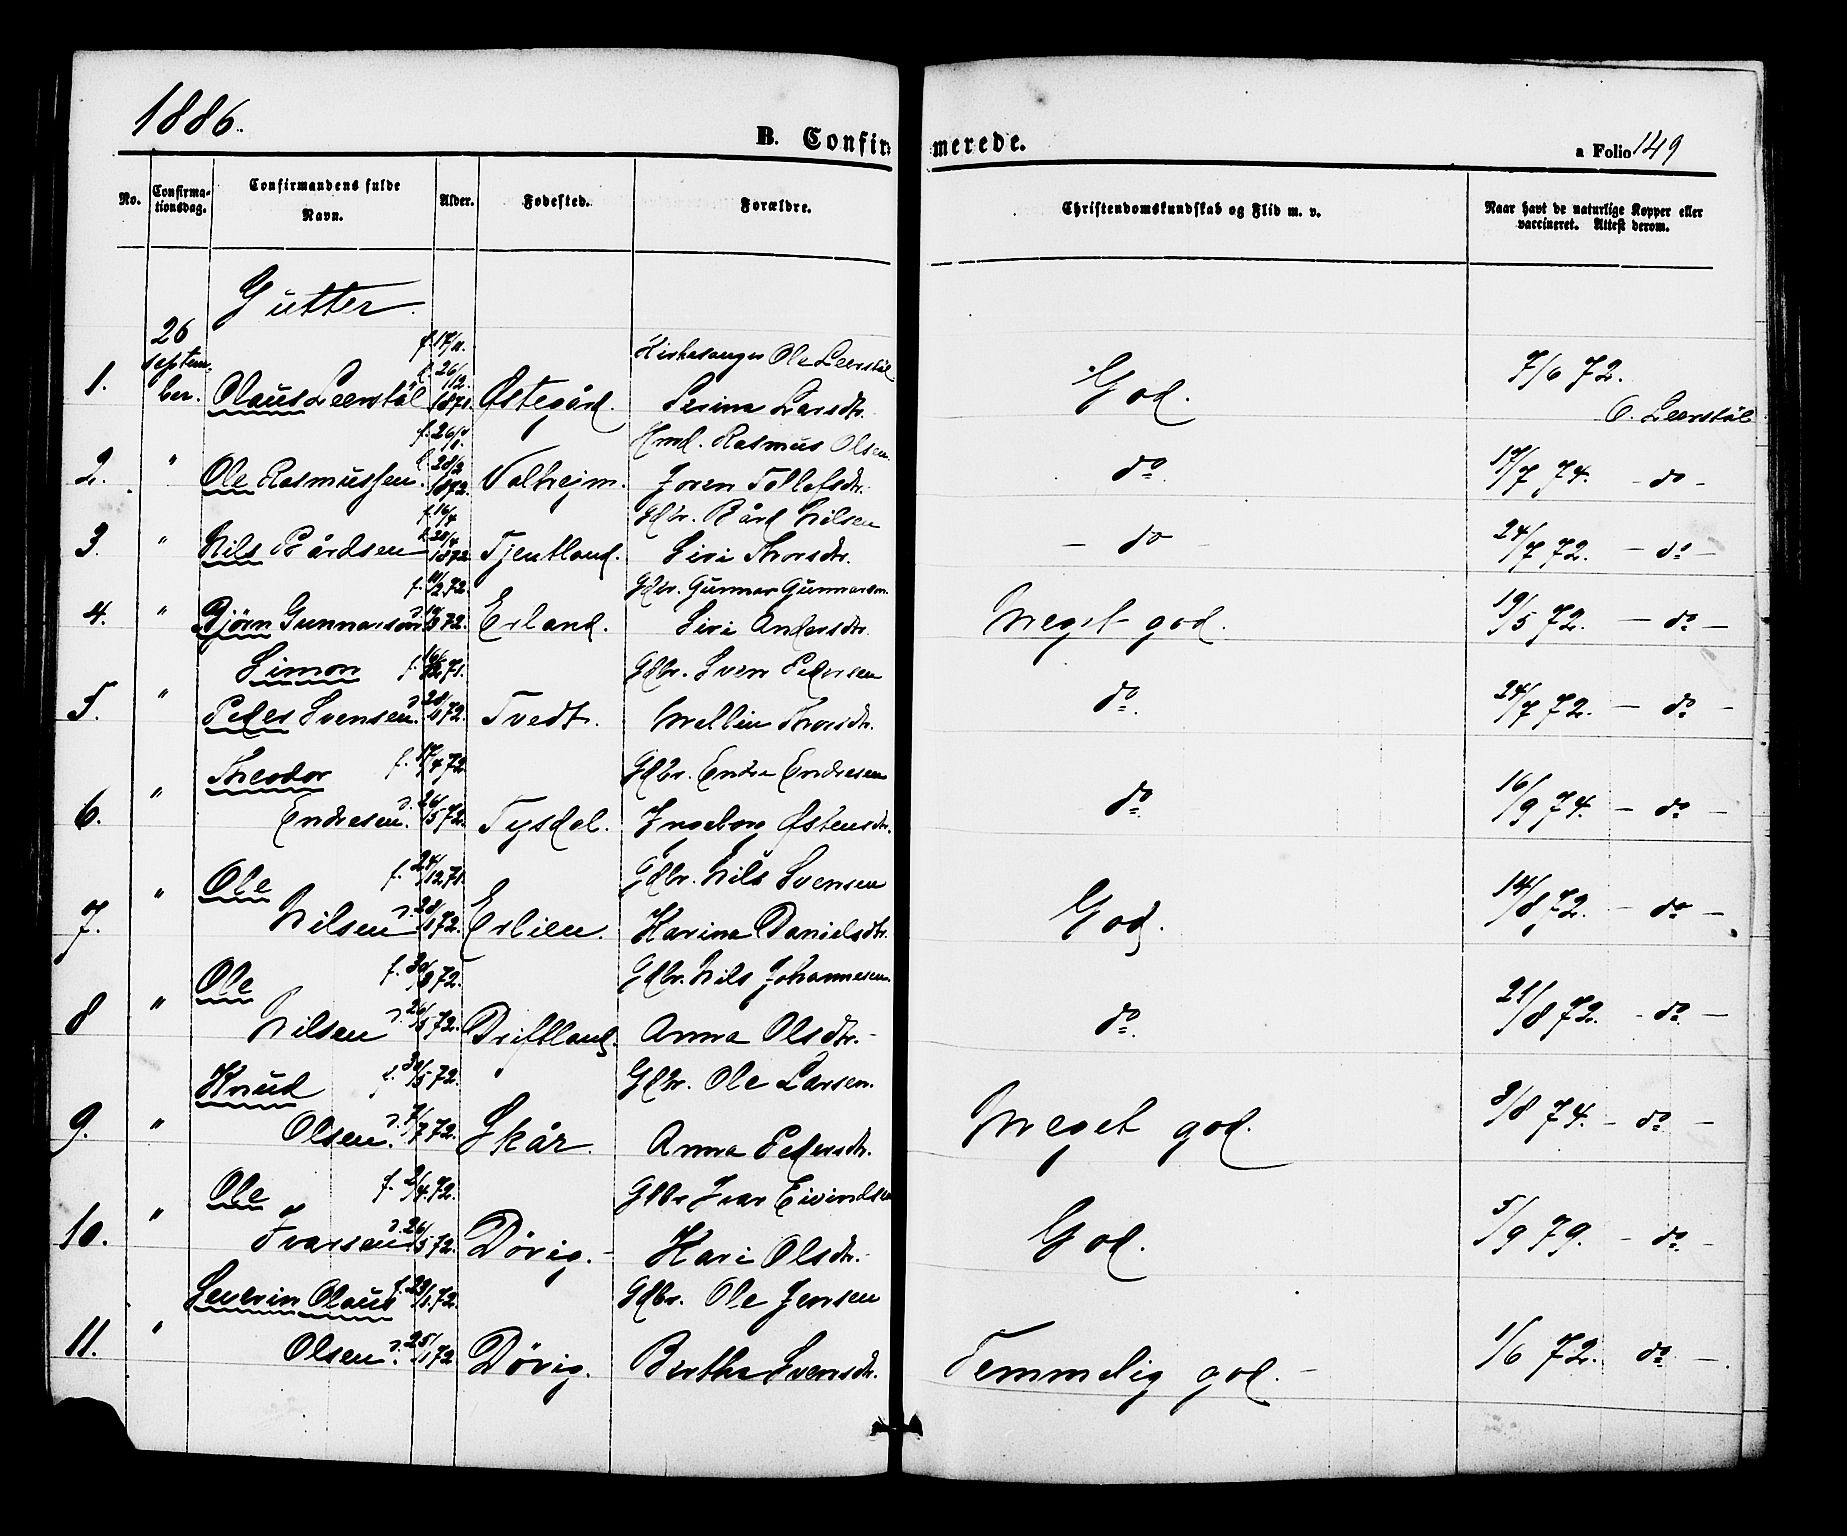 1886.
B. Confirmerede.
a Folio 149
No. Confirmationsdag. Confirmandens fulde Navn. Alder. Fødested. Forældre. Christendomskundskab og Flid m. v. Naar havt de naturlige Kopper eller vaccineret. Attest derom.
Gutter.
26 septem-
f. 17/11. Kirkesanger Ole Leerstål
1. ber. Claus Leerstål 26/12 1871. Østegård. Serina Larsdtr. God. 7/6 72. O. Leerstål
Rasmus Olsen.
2. " Ole Rasmussen. 28/2 1872. Valheim. Joren Tollefsdtr. do 17/7 74. - do -
f. 16/4 Gdbr. Bård Nilsen
3. " Nils Bårdsen 1872 Tjentland. Siri Thorsdtr. - do - 24/7 72. - do -
f. 11/2 72. Gdbr. Gunnar Gunnarsen.
4. " Bjørn Gunnarsen 72. Erland. Siri Andersdtr. Meget god. 19/5 72. - do -
Simon f. 16/12 71. Gdbr. Sven Pedersen
5. " Peder Svensen. d. 28/1 72. Tvedt. Mallin Thorsdtr. do. 24/7 72. - do -
Theodor f. 17/4 72 Gdbr. Endre Endresen
6. " Endresen. d. 26/5 72. Tysdal. Ingeborg Østensdtr. do 16/9 74. - do -
Ole f. 24/12 71. Gdbr. Nils Svensen
7. " Nilsen d. 28/1 72. Erlien. Karina Danielsdtr. God. 14/8 72. - do -
Ole f. 72. Gdbr. Nils Johannesen
8 " Nilsen d. 26/5 72. Driftland. Anna Olsdtr. - do. 21/8 72. - do -
Knud f. 30/5 72. Gdbr. Ole Larsen.
9. " Olsen. d. 7/7 72. Skår. Anna Pedersdtr. Meget god. 3/8 74. - do -
Ole f. 2/4 72. Gdbr Ivar Eivindsen
10. " Ivarsen d. 26/5 72. Dørig. - Kari Olsdtr. God. 5/9 79. - do -
Severin Olaus f. 72. Gdbr. Ole Jensen
11. " Olsen. d. 72 Dørig. Bertha Svensdtr. Temmelig god. - 1/6 72. do -